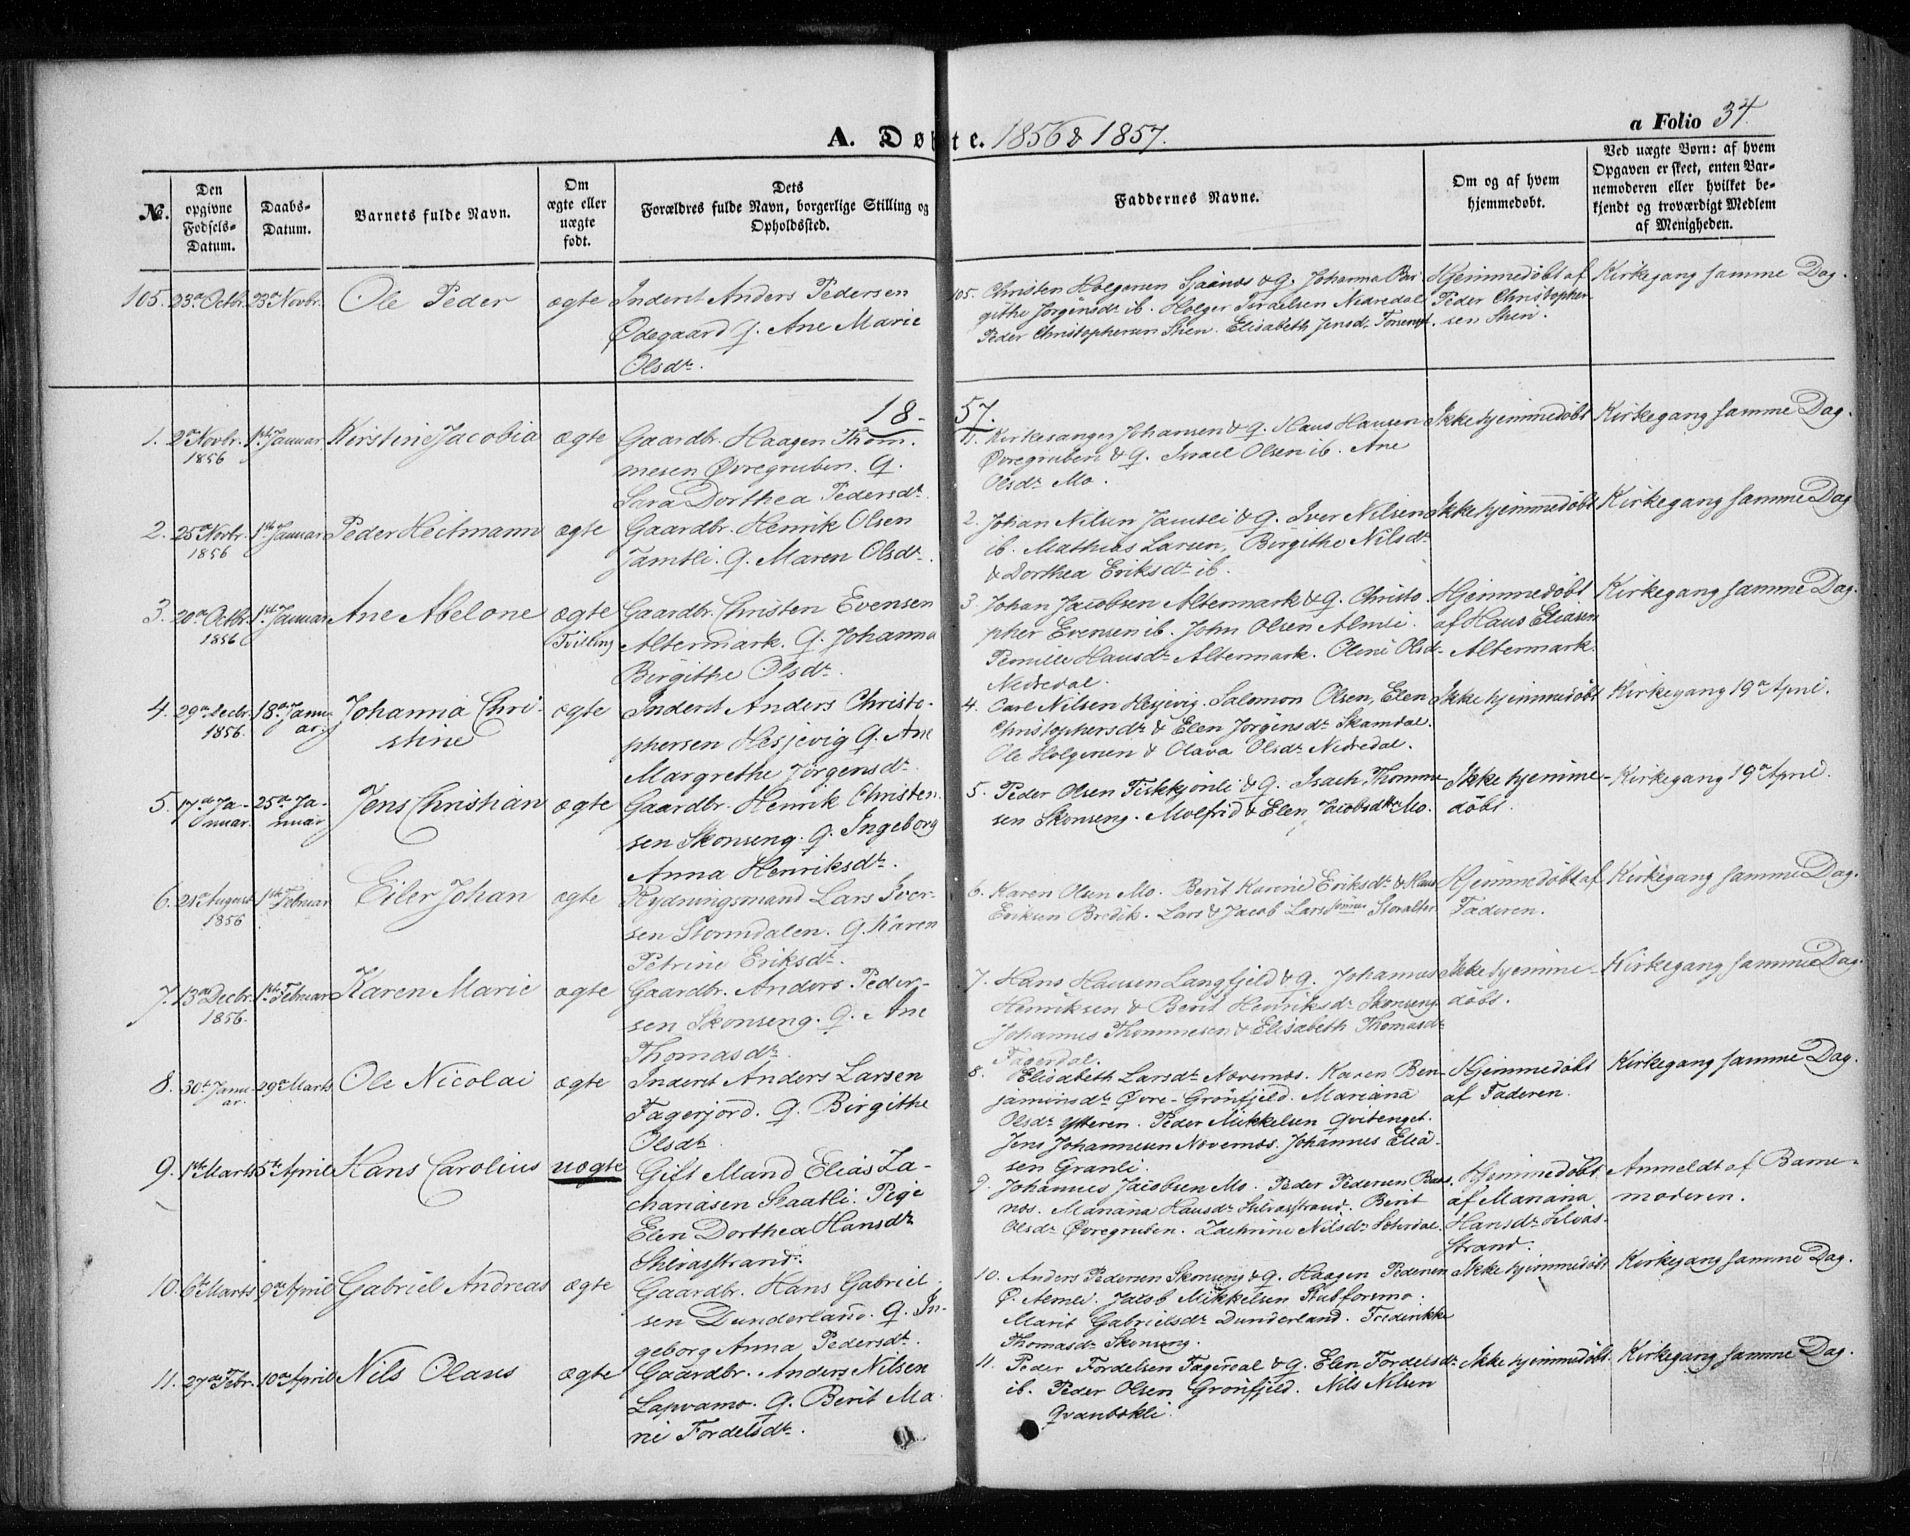 A. Døbte. 1856 & 1857.
a Folio 34.
No.
Den opgivne Fødsels-Datum.
Daabs-Datum.
Barnets fulde Navn.
Om ægte eller uægte født.
Dets Forældres fulde Navn, borgerlige Stilling og Opholdssted.
Faddernes Navne.
Om og af hvem hjemmedøbt.
Ved uægte Børn: af hvem Opgaven er skeet, enten Barnemoderen eller hvilket bekjendt og troværdigt Medlem af Menigheden.
105. 23de Octbr. 23de Novbr. Ole Peder ægte Inderst Anders Pedersen
Ødegaard g. Ane Marie
Olsdr.
105. Christen Holgersen & g. Johanna Bir
githe Jörgensdr ib. Holger Israelsen Nedredal
Peder Christophersen Elisabeth Jensdr
Hjemmedøbt af
Peder Christopher
sen
Kirkegang samme Dag.
18-57.
1. 2de Novbr. 1856 1ste Januar Kirstine Jacobia ægte Gaardbr. Haagen Thom-
mesen Øvregruben. g.
Sara Dorthea Pedersdr.
1. Kirkesanger Johansen & g. Hans Hansen
Øvregruben & g. Israel Olsen ib. Ane
Olsdr Mo.
Ikke hjemmedøbt
Kirkegang samme Dag.
2. 25de Novbr. 1856 1ste Januar Peder Heitmann ægte Gaardbr. Henrik Olsen
Jamtli. g. Maren Olsdr.
2. Johan Nilsen Jamtli & g. Iver Nilsen
ib. Mathias Larsen, Birgithe Nilsdr
& Dorthea Eriksdr ib.
Ikke hjemmedøbt
Kirkegang samme Dag
3. 20de Octbr. 1856 1ste Januar Ane Abelone ægte (Tvilling) Gaardbr. Christen Evensen
Altermark. g. Johanna
Birgithe Olsdr.
3. Johan Jacobsen Altermark & g. Christo-
pher Evensen ib. John Olsen
Pernille Hansdr Altermark. Oline Olsdr
Nedredal.
Hjemmedøbt
af Hans Eliasen
Altermark.
Kirkegang samme Dag.
4. 29de Decbr. 1856. 18de Januar Johanna Chri-
stine
ægte Inderst Anders Christo-
phersen Hesjevig g. Ane
Margrethe Jörgensdr.
4. Carl Nilsen Hesjevig. Salomon Olsen, Elen
Christophersdr & Elen Jörgensdr Skamdal.
Ole Holgersen & Olava Olsdr Nedredal.
Ikke hjemmedøbt
Kirkegang 19de April.
5. 17de Januar. 25de Januar Jens Christian ægte Gaardbr. Henrik Christen
sen Skonseng. g. Ingeborg
Anna Henriksdr.
5. Peder Olsen Fiskkjönli & g. Isach Thomme
sen Skonseng. Molfrid & Elen Jacobsdtr Mo.
Ikke hjemme-
døbt.
Kirkegang 19de April.
6. 21de August 1856 1ste Februar Eiler Johan ægte Rydningsmand Lars Iver-
sen Stormdalen. g. Karen
Petrine Eriksdr.
6. Karen Olsen Mo. Berit Karine Eriksdr & Hans
Eriksen Bredik. Lars & Jacob Larssønner
Hjemmedøbt af
Faderen.
Kirkegang samme Dag.
7. 13de Decbr. 1856. 1ste Februar Karen Marie ægte Gaardbr. Anders Peder-
sen Skonseng. g. Ane
Thomasdr.
7. Hans Hansen Langfjeld & g. Johannes
Henriksen & Berit Henriksdr Skonseng.
Johannes Thommesen & Elisabeth Thomasdr
Fagerdal.
Ikke hjemme-
døbt.
Kirkegang samme Dag.
8. 30te Januar. 29de Marts Ole Nicolai ægte Inderst Anders Larsen
Fagerjord. g. Birgithe
Olsdr.
8. Elisabeth Larsdr Nævernæs. Karen Ben-
jaminsdr Øvre-Grönfjeld. Mariana
Olsdr Ytteren. Peder Mikkelsen
Jens Johannesen Nævernæs. Johannes Elia-
sen Granli.
Hjemmedøbt
af Faderen.
Kirkegang samme Dag.
9. 1ste Marts 5te April Hans Carolius uægte Gift Mand Elias Za-
chariasen Staatli. Pige
Elen Dorthea Hansdr
9. Johannes Jacobsen Mo. Peder Pedersen
Mariana Hansdr Berit
Olsdr Øvregruben. Nilsdr
Hjemmedøbt
af Mariana
Hansdr
strand.
Anmeldt af Barne-
moderen.
10. 6te Marts 9de April Gabriel Andreas ægte Gaardbr. Hans Gabriel-
sen Dunderland. g. In-
geborg Anna Pedersdr.
10. Anders Pedersen Skonseng & g. Haagen Pedersen
Jacob Mikkelsen Stubforsmo.
Marit Gabrielsdr Dunderland. Frederikke
Thomasdr Skonseng.
Ikke hjemmedøbt
Kirkegang samme Dag.
11. 27de Febr. 10de April Nils Olaus ægte Gaardbr. Anders Nilsen
Lapvamo. g. Berit Ma-
rie Fordelsdr.
11. Peder Fordelsen Fagerdal & g. Elen Fordelsdr
ib. Peder Olsen Grönfjeld. Nils Nilsen
Ikke hjemmedøbt.
Kirkegang samme Dag.